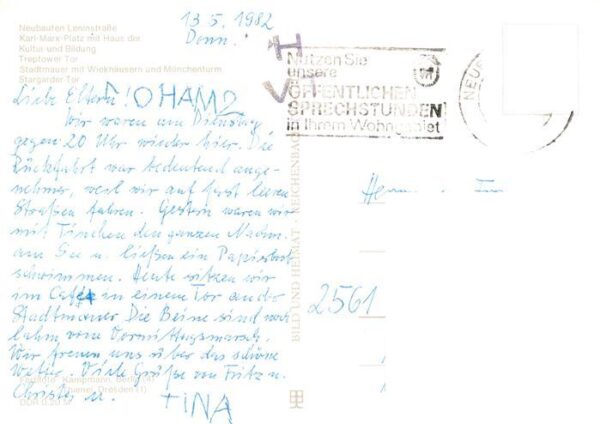 Neubauten Leninstraße
Karl-Marx-Platz mit Haus der
Kultur und Bildung
Treptower Tor
Stadtmauer mit Wiekhäusern und Mönchenturm
Stargarder Tor
13 5. 1982
Donn.
Nutzen Sie
unsere
ÖFFENTLICHEN
SPRECHSTUNDEN
in Ihrem Wohngebiet
NEU
Liebe Eltern!
Wir waren am Dienstag
gegen 20 Uhr wieder hier. Die
Rückfahrt war bedeutend ange-
nehmer, weil wir auf fast leeren
Straßen fuhren. Gestern waren wir
mit Tinchen den ganzen Nachm.
am See u. ließen ein Papierboot
schwimmen. Heute sitzen wir
im Café in einem Tor an der
Stadtmauer Die Beine sind noch
lahm vom Vormittagsmarsch.
Wir freuen uns über das schöne
Wetter. Viele Grüße von Fritz u.
Christa u.
TINA
BILD UND HEIMAT · REICHENBACH
2561
Kampmann, Berlin (4)
Dresden (1)
DDR 0,20 M